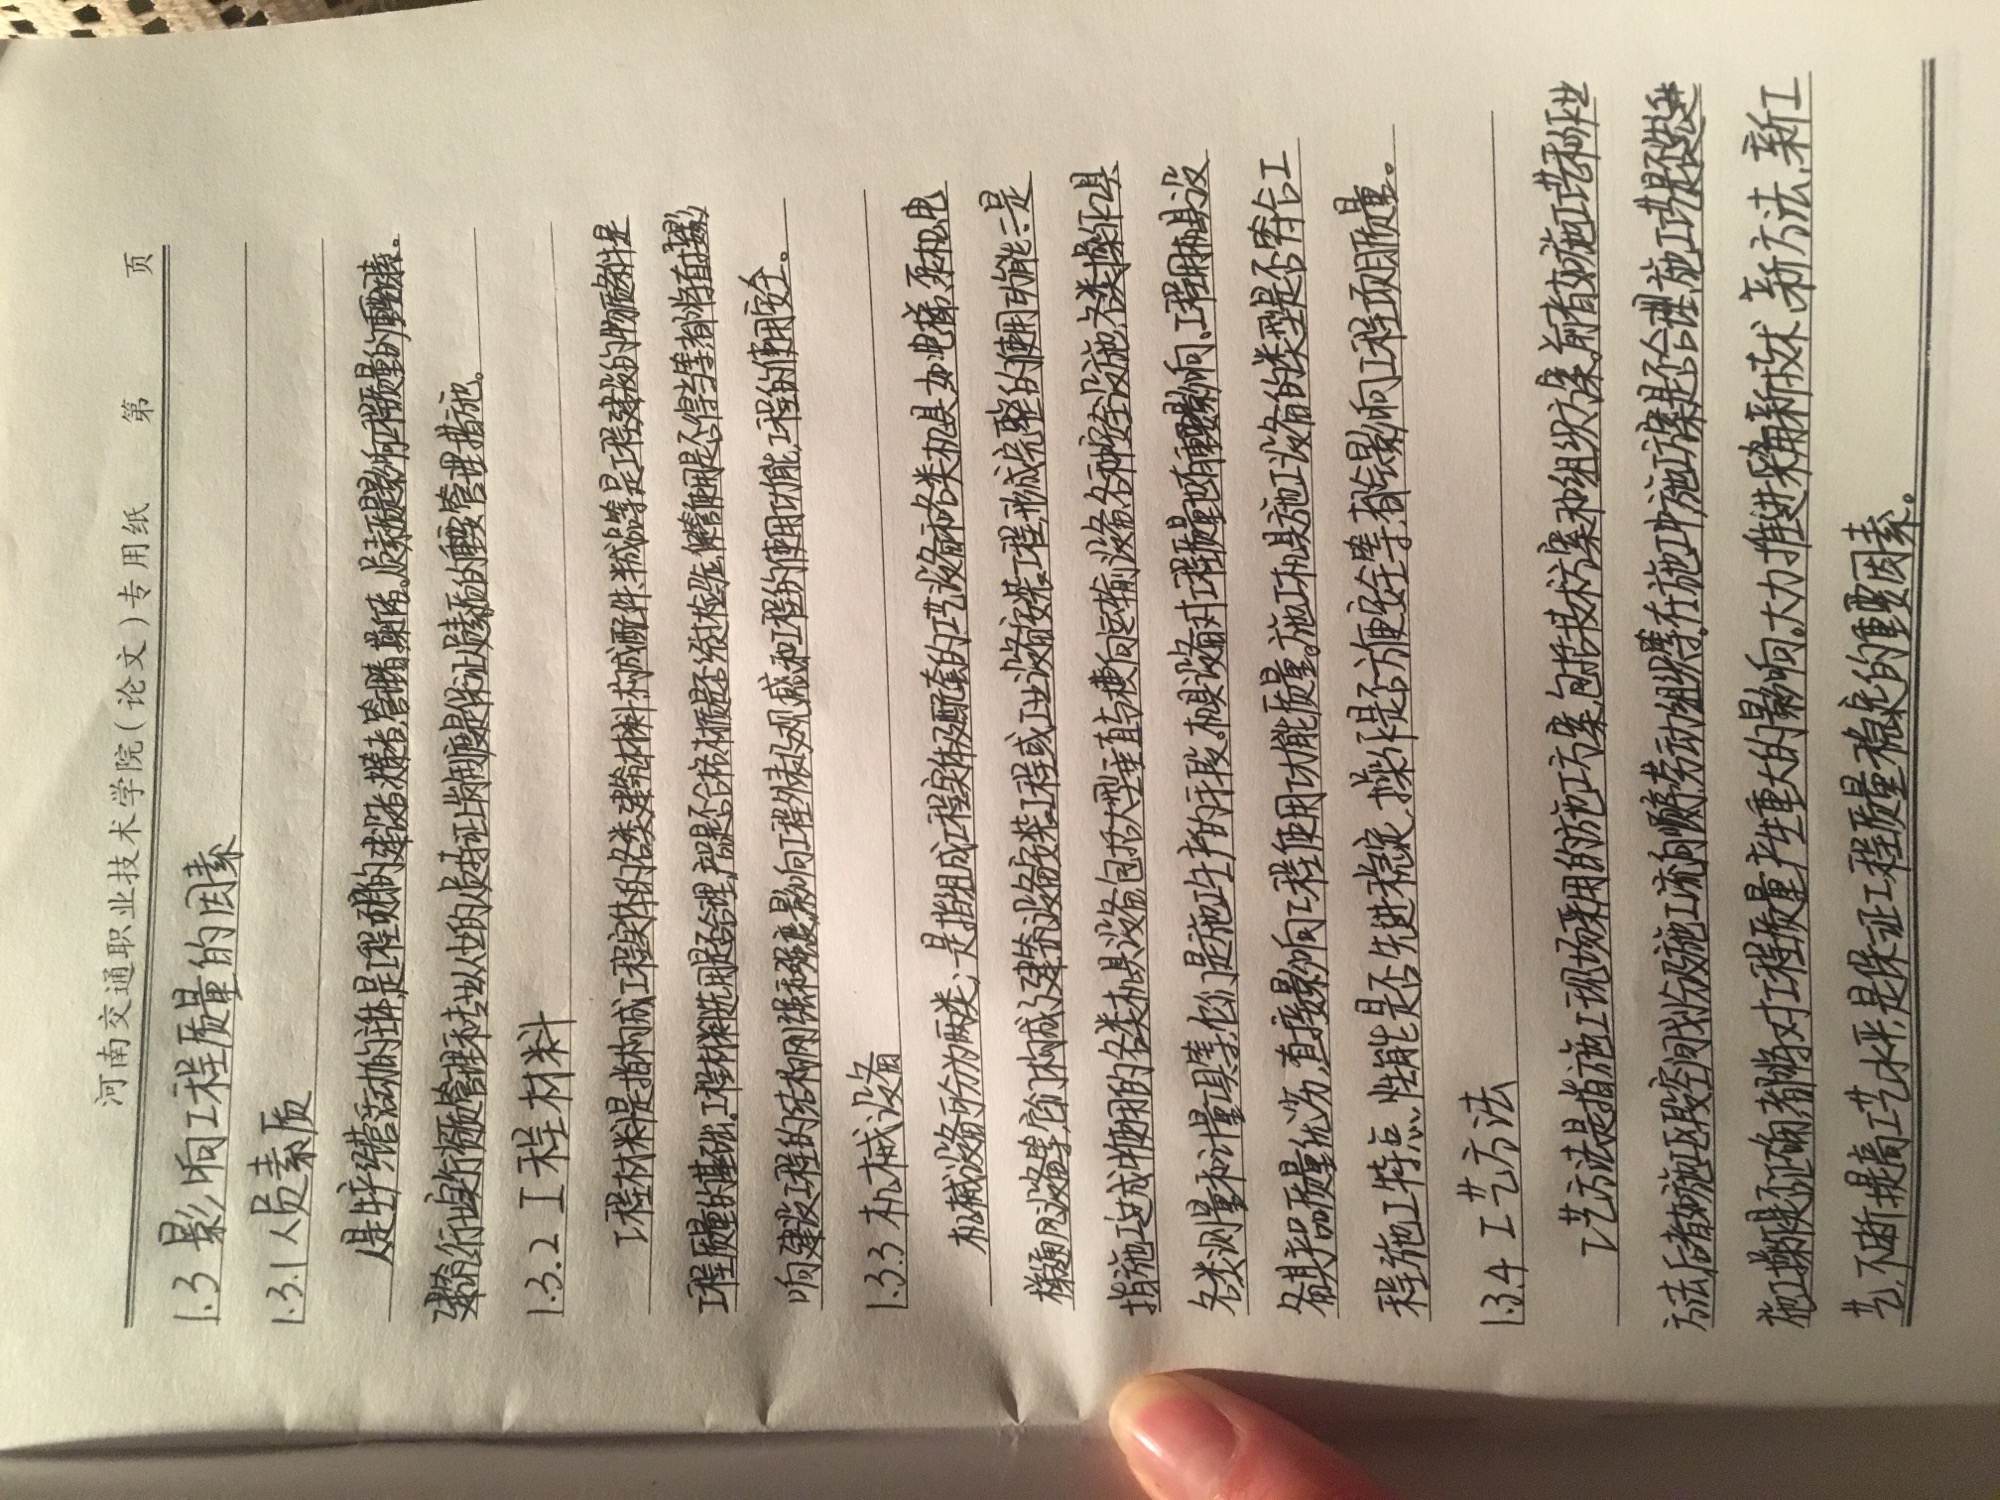 河南交通职业技术学院(论文)专用纸 第 页
1.3 影响工程质量的因素
1.3.1 人员素质
人是生产经营活动的主体,是工程项目的建设者、决策者、管理者、操作者。人员素质是影响工程质量的重要因素。
建筑行业实行资质管理和专业从业的人员持证上岗制度是保证人员素质的重要管理措施。
1.3.2 工程材料
工程材料是指构成工程实体的各类建筑材料、构成配件、半成品等是工程建设的物质条件是
工程质量的基础。工程材料选用是否合理,产品是否合格,材质是否经过检验,保管使用是否得当等,都将直接影
响建设工程的结构刚强和强度,影响工程外表及观感和工程的使用功能,工程的使用安全。
1.3.3 机械设备
机械设备可分为两类:一是指组成工程实体及配套的工艺设备和各类机具,如电梯、泵机、电
梯、通风设备等,它们构成了建筑设备安装工程或工业设备安装工程,形成完整的使用功能。二是
指施工过成中使用的各类机具设备,包括大型垂直与横向运输设备,各种安全设施,各类操作工具
各类测量和计量工具等,他们是施工生产的手段。机具设备对工程质量也有重要影响,工程用机具设
备其产品质量优劣,直接影响工程使用功能质量。施工机具施工设备的类型是否符合工
程施工特点,性能是否先进稳定,操作是否方便安全等,都会影响工程项目质量。
1.3.4 工艺方法
工艺方法是指施工现场采用的施工方案,包括技术方案和组织方案。前者如施工工艺和作业
方法,后者如施工区段空间划分及施工流向顺序、劳动组织等。在施工中,施工方案是否合理,施工工艺是否先进
施工操作是否正确,都将对工程质量产生重大的影响。大力推进采用新技术、新方法、新工
艺,不断提高工艺水平,是保证工程质量稳定的重要因素。